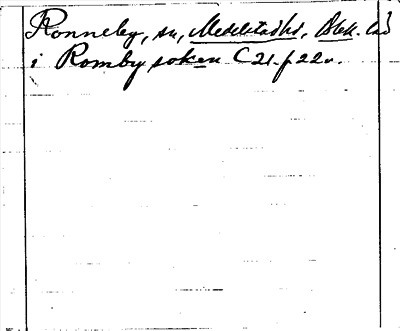 Ronneby, sn, Medelstadhd, Blek. län
i Romby soken C 21. f 22 v.